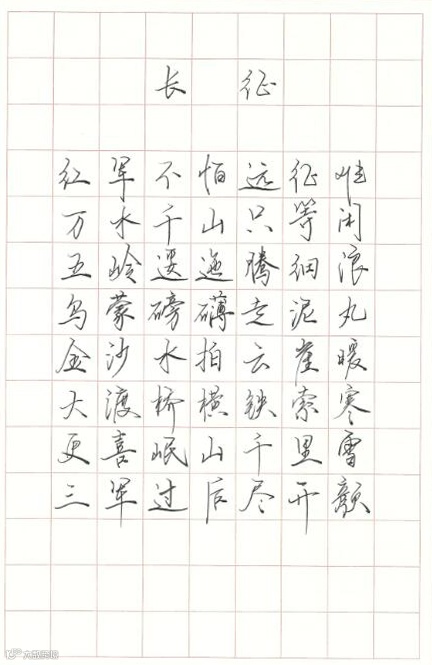 长征
红军不怕远征难
万水千山只等闲
五岭逶迤腾细浪
乌蒙磅礴走泥丸
金沙水拍云崖暖
大渡桥横铁索寒
更喜岷山千里雪
三军过后尽开颜